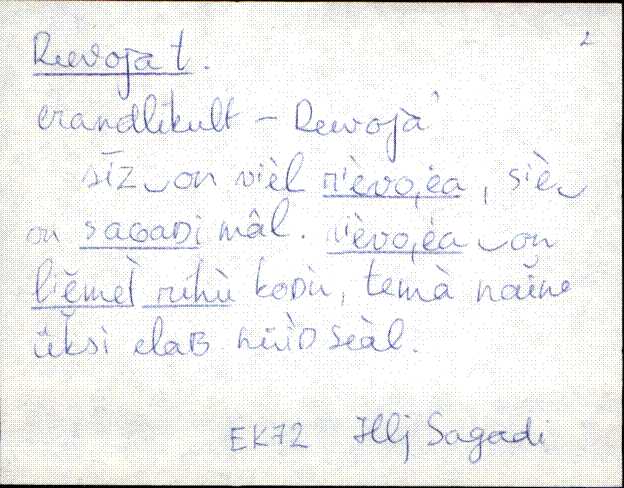 2
Reevoja t.
erandlikult – Reevoja'
sīz‿on vièl rièvo,èa, siè‿
on saGaDi mâl. rièvo,èa‿on
liěmèt rühü koDu, temà naĭne
üksi elaB nüìD seàl.
EK72 Hlj Sagadi